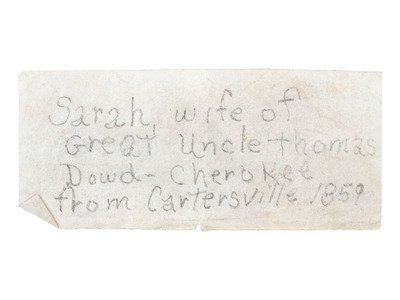 Sarah, wife of
Great Uncle thomas
Dowd - Cherokee
from Cartersville 1859